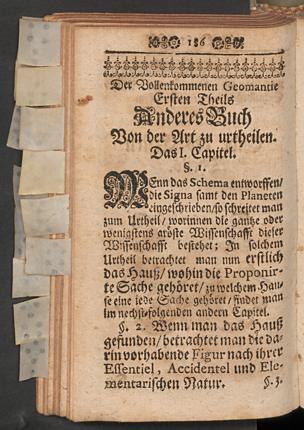 186
Der Vollenkommenen Geomantie
Ersten Theils
Anderes Buch
Von der Art zu urtheilen.
Das I. Capitel.
§. 1.
WEnn das Schema entworffen/
die Signa samt den Planeten
eingeschrieben/ so schreitet man
zum Urtheil/ worinnen die gantze oder
wenigstens gröste Wissenschafft dieser
Wissenschafft bestehet; In solchem
Urtheil betrachtet man nun erstlich
das Hauß/ wohin die Proponir-
te Sache gehöret/ zu welchem Hau-
se eine jede Sache gehöret/ findet man
im nechst-folgenden andern Capitel.
§. 2. Wenn man das Hauß
gefunden/ betrachtet man die da-
rin vorhabende Figur nach ihrer
Essentiel, Accidentel und Ele-
mentarischen Natur.
§. 3.